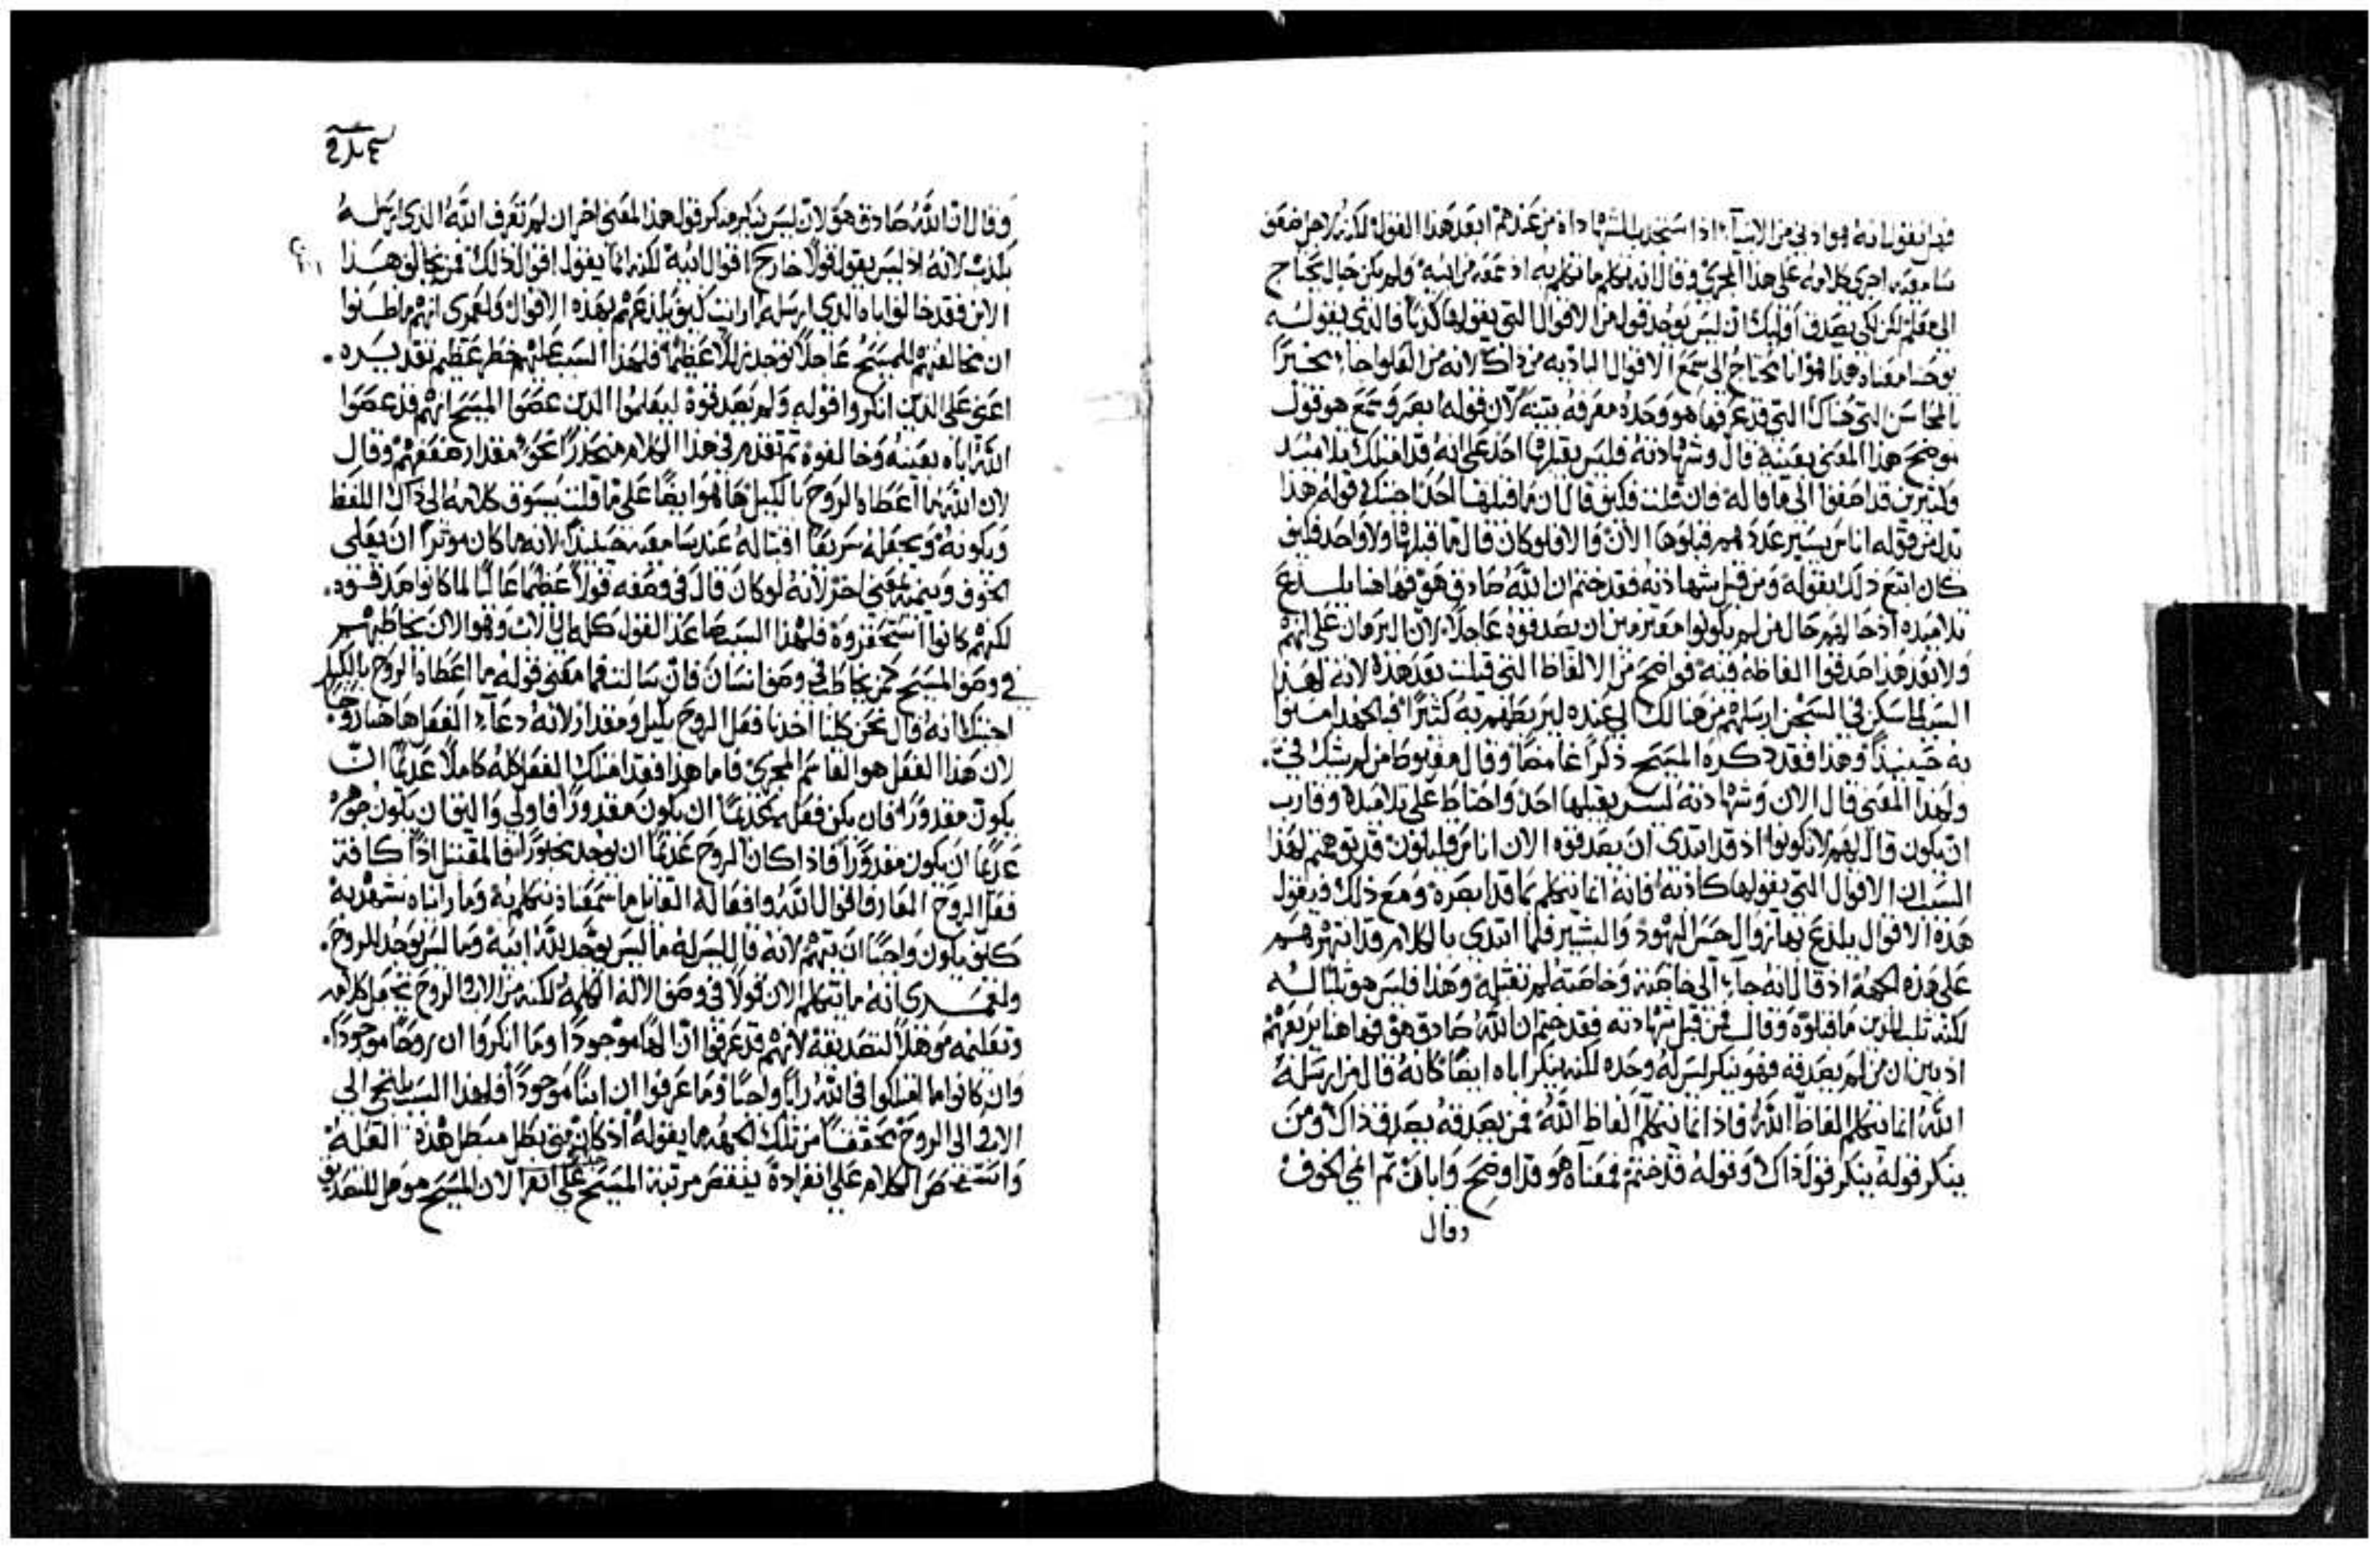 فيه انه هو ادنى من الانبيآء اذا ستجذب الشهاداة من عندهم ابعد هذا القول لكنه لاجل ضعف
سامعيه اجرى كلامه على هذا المجرى وقال انه يتكلم ما تكلم به اذ عقد من ابيه ولم يكن حال يحتاج
الى معلم لكن لكي يصدق اوليك ان ليس يوجد قول من الاقوال التي يقولها كذبًا فالذي يقوله
يوحنا معناه هذا هو انا محتاج الى سمع الاقوال الباديه من ذاك لانه من العلو جاء مخبرًا
بالمحاسن التي هناك التي قد عرفها هو وحده معرفه بينه لان قوله ابصر وسمع هو قول
موضح هذا المعنى بعينه قال وشهادته فليس يقبلها احد على انه قد امتلك تلاميد
وكثيرين قد اصغوا الى ما قاله فان قلت فكيف قال ان ما قبلها احد اجبتك قوله هذا
بدل من قوله اناس يسير عددهم قبلوها الان والا فلو كان قال ما قبلها ولا واحد فكيف
كان اتبع ذلك بقوله ومن قبل شهادته فقد ختم ان الله صادق هو فهاهنا يلسدع
تلاميده اذ حالهم حال من لم يكونوا معتزمين ان يصدقوه عاجلاً لان البرهان على انهم
ولا بعد هذا صدقوا الفاظه فيه فواضح من الالفاظ التي قيلت بعد هذه لانه لهذا
السبب لما سكن في السجن ارسلهم من هنالك الى عنده ليربطهم به كثيرًا فبالجهد امنوا
به حينيذ وهذا فقد ذكره المسيح ذكرًا غامضًا وقال مغبوطًا من لم يشك في.
ولهذا المعنى قال الان وشهادته ليس يقبلها احد واحتاط على تلاميده وقارب
ان يكون قال لهم لا تكونوا اذ قد ابتدى ان يصدقوه الان اناس قليلون قد توهمتم لهذا
السبب ان الاقوال التي يقولها كاذبه فانه انما يتكلم بما قد ابصره ومع ذلك فيقول
هذه الاقوال يلذع بها زوال حس اليهود والبشير فلما ابتدى بالكلام قد انتهرهم
على هذه الجهة اذ قال انه جاء الى خاصته وخاصته لم تقبله وهذا فليس هو ثلبًا له
لكنه ثلب للذين ما قبلوه وقال فمن قبل شهادته فقد ختم ان الله صادق هو فهاهنا يريعهم
اذ يبين ان من لم يصدقه فهو ينكر ليس له وحده لكنه ينكر اباه ايضًا كانه قال من ارسله
الله انما يتكلم الفاظ الله فاذ انما يتكلم الفاظ الله فمن يصدقه يصدق ذاك ومن
ينكر قوله ينكر قول ذاك وقوله قد ختم فمعناه هو قد اوضح وابان ثم انمى الخوف
وقال
وقال ان الله صادق هو لان ليس ينكر منكر قوله هذا المعنى اخر ان لم تعرف الله الذي ارسله
يكذب لانه اذ ليس يقول قولاً خارج اقوال ابيه لكنه انما يقول اقوال ذلك فمن يخالف هذا
الابن فقد خالف اباه الذي ارسله ارايت كيف يلذعهم بهذه الاقوال ولعمري انهم ما ظنوا
ان مخالفتهم للمسيح عاجلاً توجد زللاً عظيمًا فلهذا السبب علمهم خطر عظيم تقديره.
اعني على الذين انكروا قوله ولم يصدقوه ليعلموا الذين عصوا المسيح انهم قد عصوا
الله اباه بعينه وخالفوه ثم تقدم في هذا الكلام منحدرًا نحو مقدار ضعفهم وقال
لان الله ما اعطاه الروح بالكيل هاهو ايضًا على ما قلت يسوق كلامه الى ذاك اللفظ
ويكونه ويجعله سريعًا اقتباله عند سامعيه حينيذ لانه ما كان موثرًا ان يعلى
الخوف وينميه بمعنى اخر لانه لو كان قال في وصفه قولاً عظيمًا عاليًا لما كانوا صدقوه.
لكنهم كانوا استحقروه فلهذا السبب صاعد القول كله الى الاب وهو الان يخاطبهم
في وصف المسيح كمن يخاطب في وصف انسان فان سالت فما معنى قوله ما اعطاه الروح بالكيل
اجبتك انه قال نحن كلنا اخذنا فعل الروح بكيل ومقدار لانه دعاء الفعل هاهنا روحًا.
لان هذا الفعل هو القاسم المجرى فاما هذا فقد امتلك الفعل كله كاملاً عديمًا ان
يكون مقدورًا فان يكن فعله عديمًا ان يكون مقدورًا فاولى واليق ان يكون جوهره
عديمًا ان يكون مقدورًا فاذا كان الروح عديمًا ان يوجد محاورًا فالمقتبل اذًا كافة
فعل الروح العارف اقوال الله وافعاله القايل ما سمعناه نتكلم به وما رايناه نشهد به
كيف يكون واجبًا ان يتهم لانه قال ليس له ما ليس يوجد لله ابيه وما ليس يوجد للروح.
ولعمري انه ما يتكلم الان قولاً في وصف الاله الكلمه لكنه من الاب والروح يجعل كلامه
وتعليمه موهلاً لتصديقه لانهم قد عرفوا ان الهًا موجودًا وما انكروا ان روحًا موجودًا.
وان كانوا ما امتلكوا في الله رايًا واجبًا وما عرفوا ان ابنًا موجودًا فلهذا السبب يلتجى الى
الاب والى الروح محققًا من تلك الجهه ما يقوله اذ كان متى بطل مبطل هذه العله
واستفحص الكلام على انفراده ينقص مرتبة المسيح لان المسيح موهل للتصديق